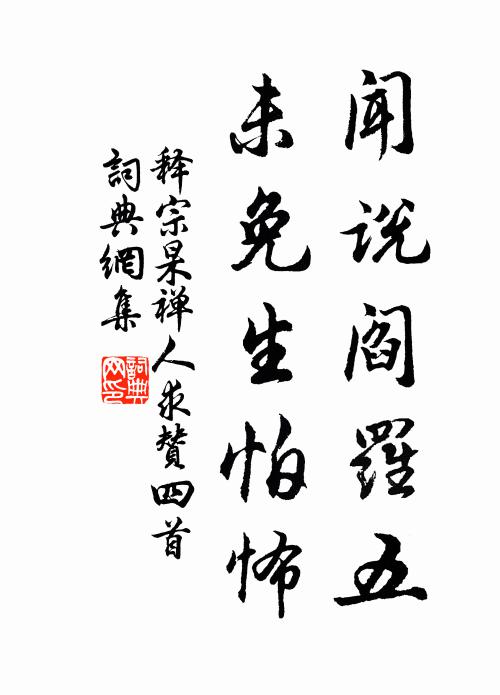 闻说阎罗五
未免生怕怖
释宗杲禅人求赞四首
词典網集
詞典網印